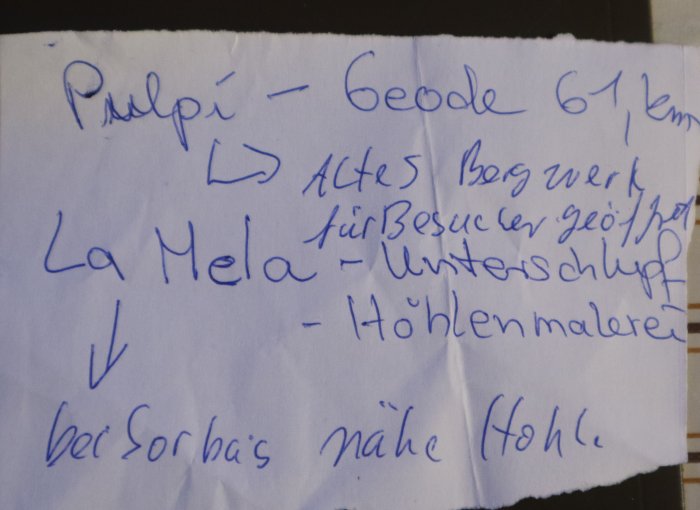 Pulpí - Geode 61, km
↳ Altes Bergwerk
für Besucher geöffnet
La Mela - Unterschlupf
- Höhlenmalerei
↓
bei Sorbas nähe Höhl.